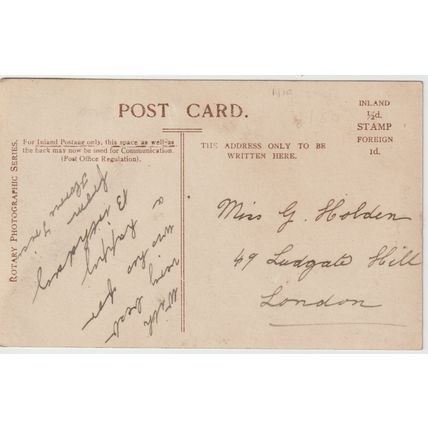 POST CARD.
INLAND
½d.
STAMP
FOREIGN
1d.
For Inland Postage only, this space as well as
the back may now be used for Communication.
(Post Office Regulation).
THE ADDRESS ONLY TO BE
WRITTEN HERE.
ROTARY PHOTOGRAPHIC SERIES.
With best
wishes for
a
happy
Birthday
from
Miss G. Holden
49 Ludgate Hill
London